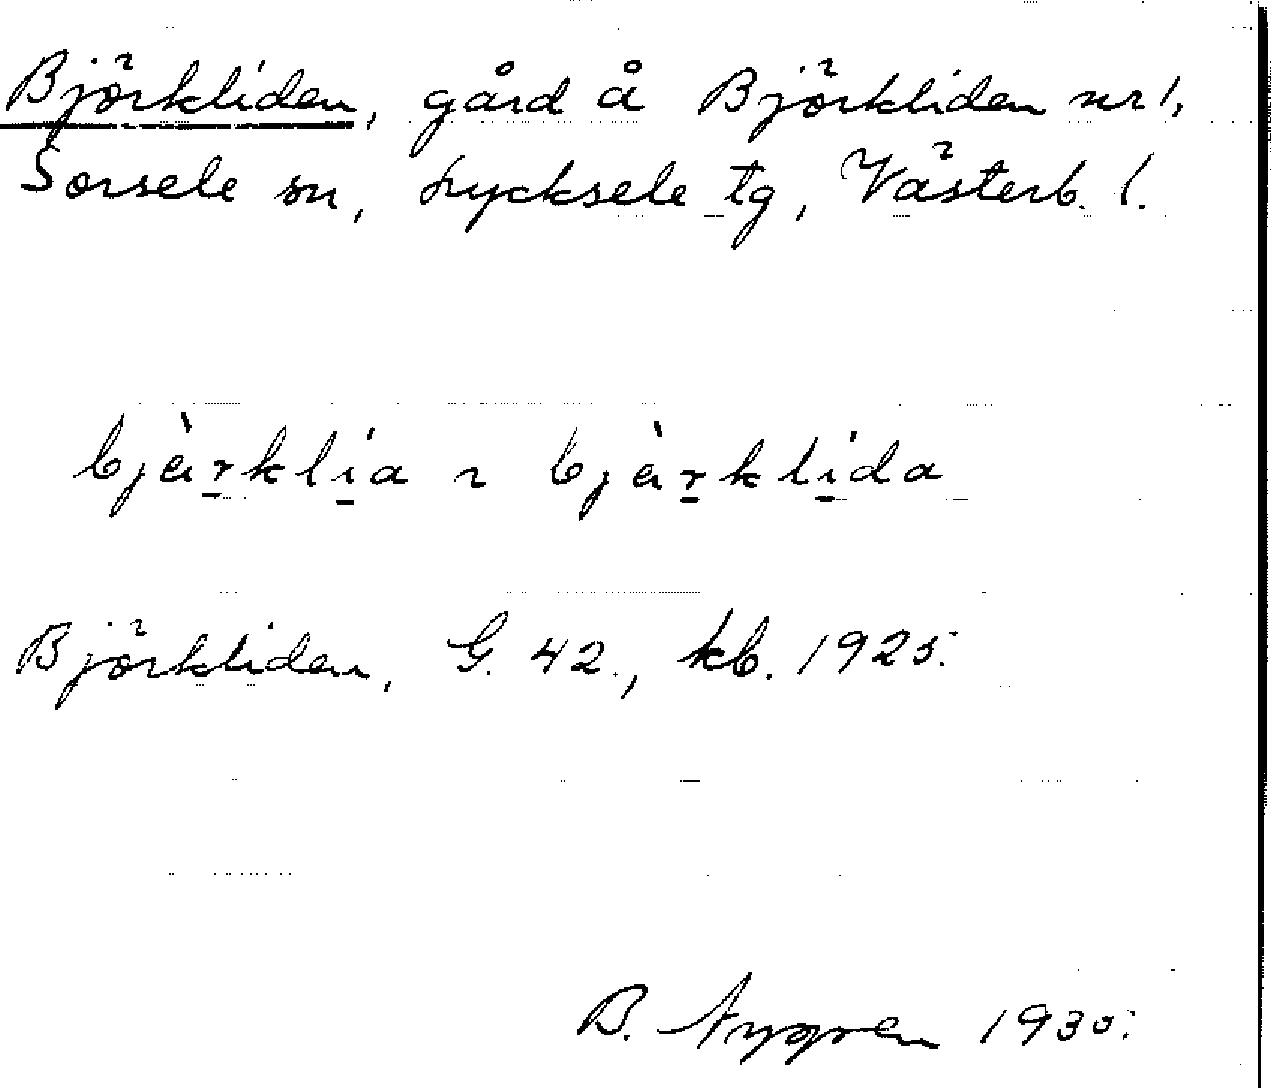 Björkliden, gård å Björkliden nr 1,
Sorsele sn, Lycksele tg, Västerb. l.
bjèr̲kli̲a ~ bjèr̲kli̲da
Björkliden, G. 42., kb. 1925.
B. Nygren 1935.